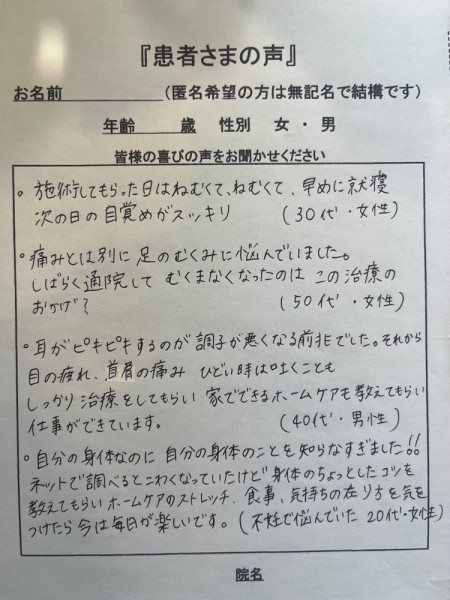 『患者さまの声』
お名前　　　　　　　(匿名希望の方は無記名で結構です)
年齢　　　歳　性別　女・男
皆様の喜びの声をお聞かせください
。施術してもらった日はねむくて、ねむくて、早めに就寝
次の日の目覚めがスッキリ　　(30代・女性)
。痛みとは別に足のむくみに悩んでいました。
しばらく通院して むくまなくなったのは この治療の
おかげ？　　(50代・女性)
。耳がピキピキするのが 調子が悪くなる前兆でした。それから
目の疲れ、首肩の痛み ひどい時は吐くことも
しっかり治療をしてもらい 家でできるホームケアも教えてもらい
仕事ができています。　　(40代・男性)
。自分の身体なのに 自分の身体のことを知らなすぎました!!
ネットで調べるとこわくなっていたけど 身体のちょっとしたコツを
教えてもらい ホームケアのストレッチ、食事、気持ちの在り方を気を
つけたら 今は毎日が楽しいです。(不妊で悩んでいた 20代・女性)
院名